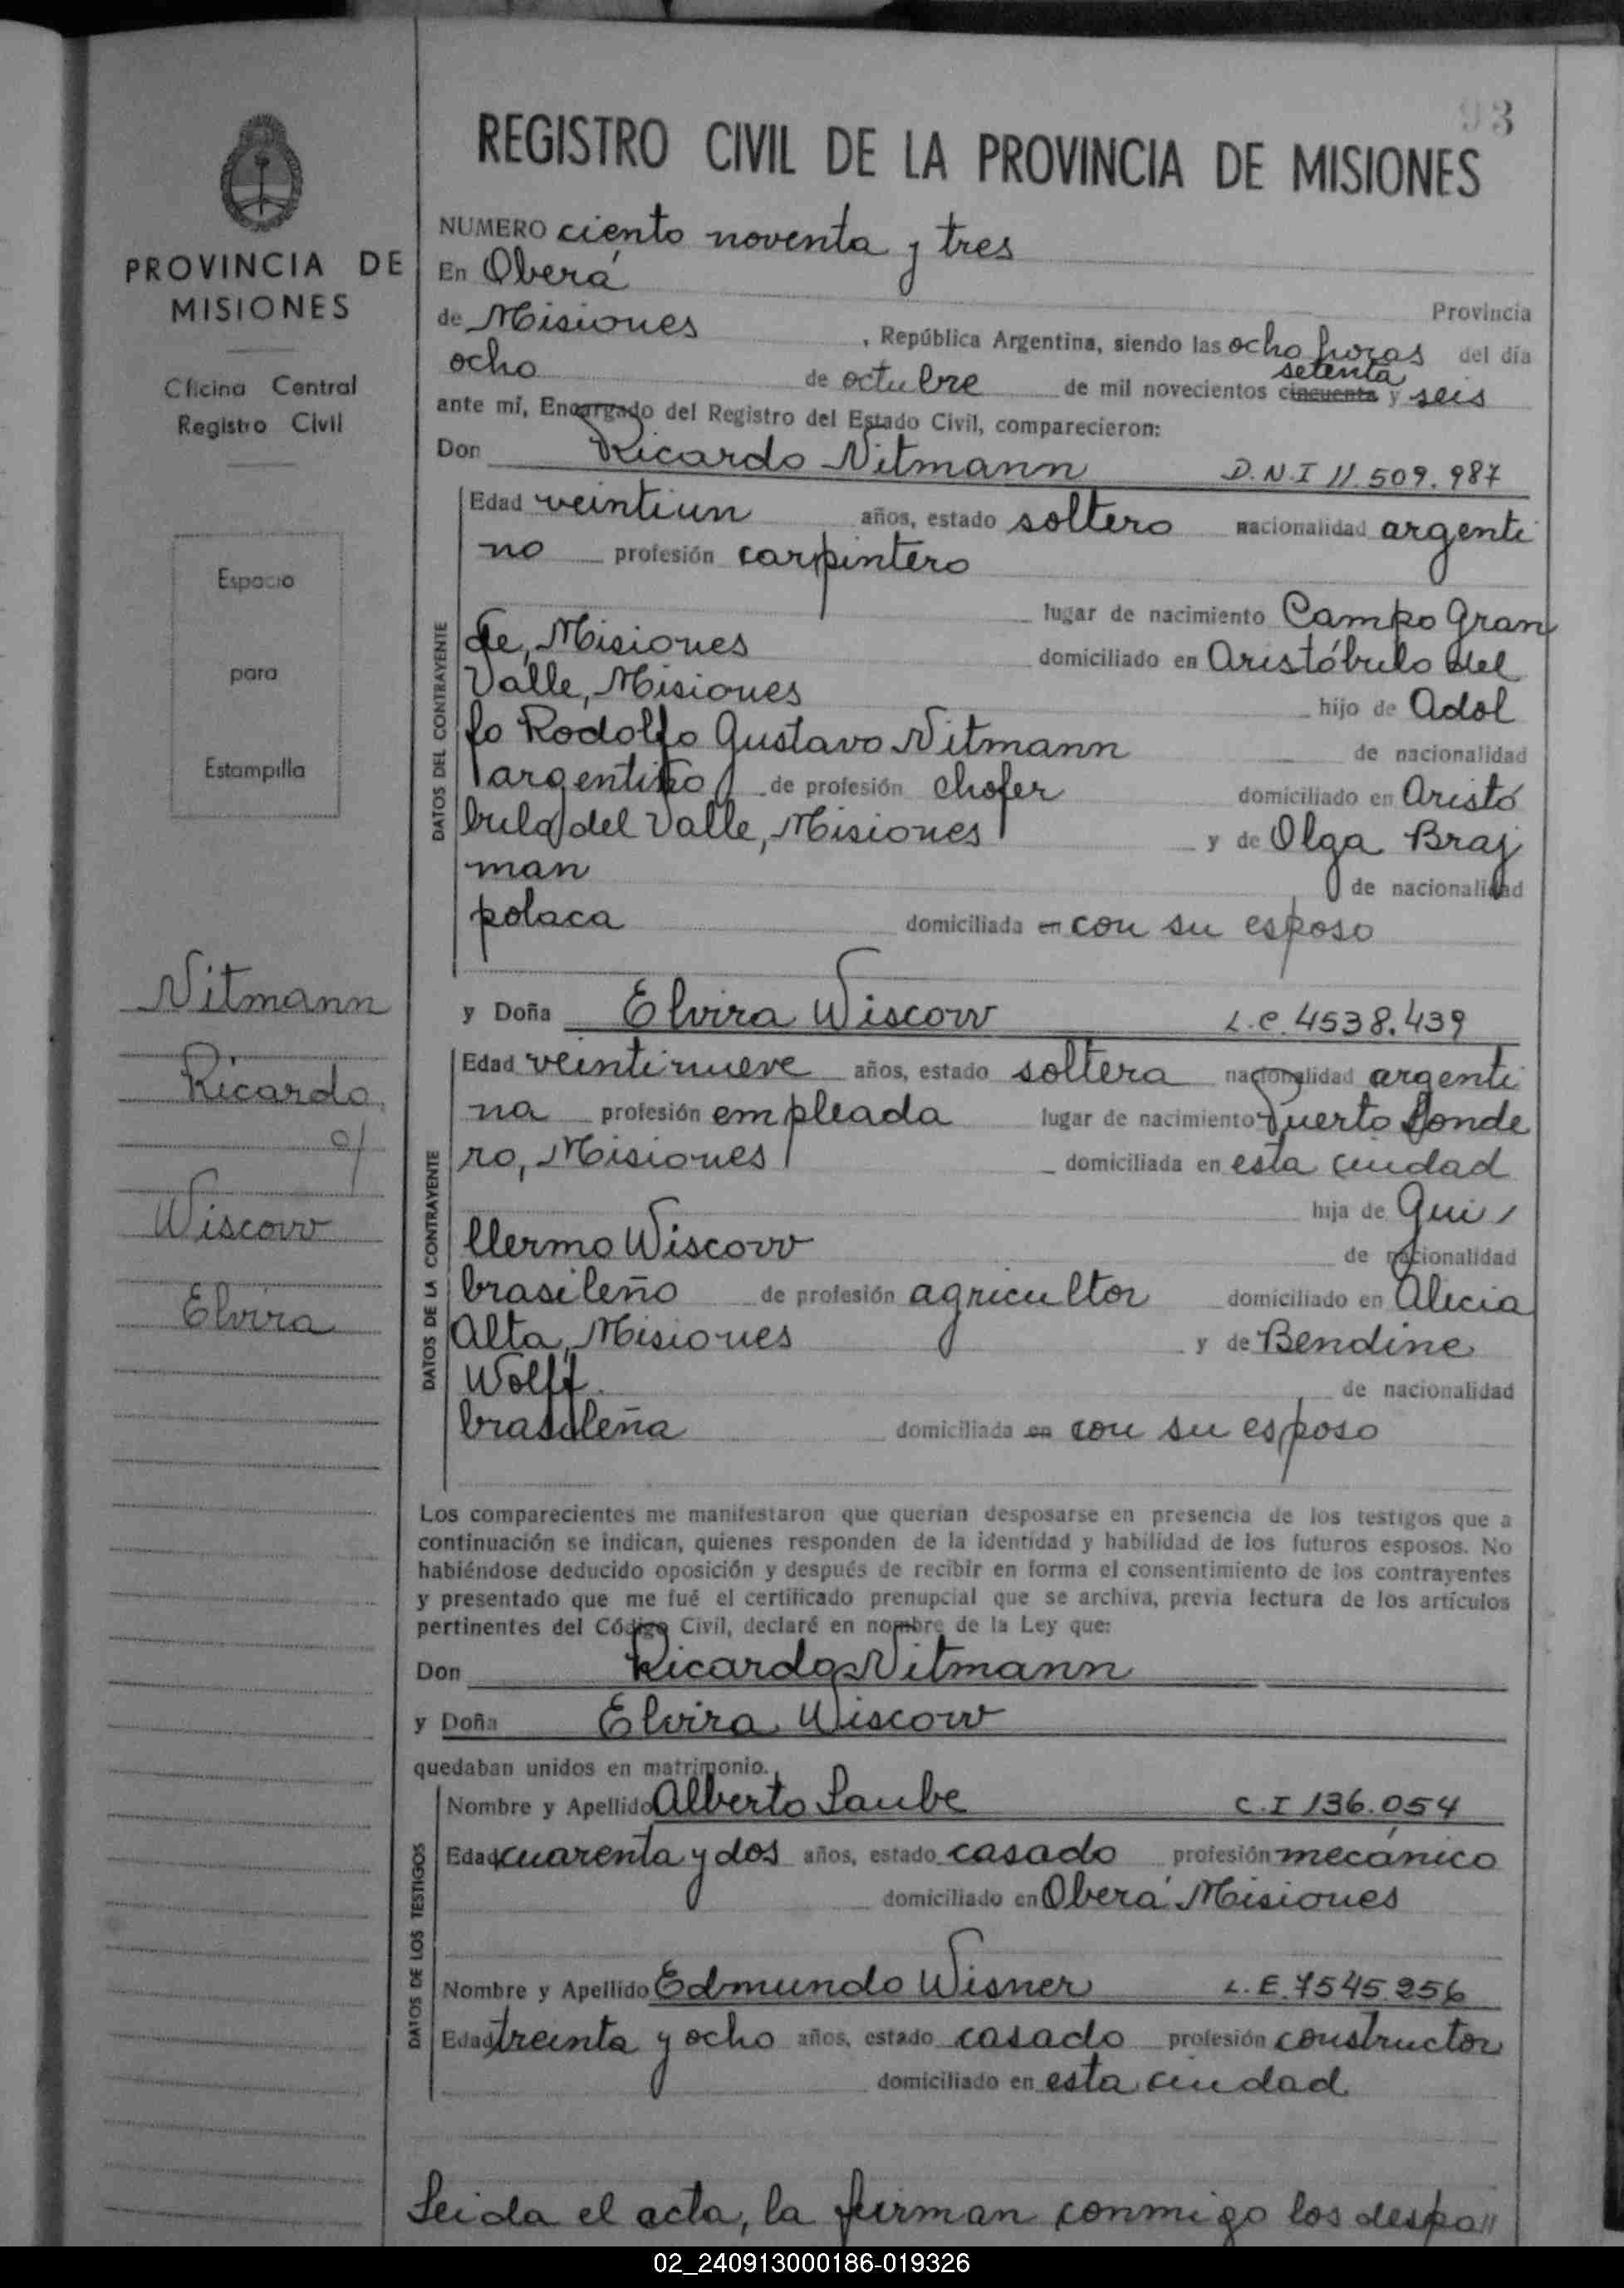 93
REGISTRO CIVIL DE LA PROVINCIA DE MISIONES
PROVINCIA DE
MISIONES
Oficina Central
Registro Civil
Espacio
para
Estampilla
Nitmann
Ricardo
y
Wiscow
Elvira
NUMERO ciento noventa y tres
En Oberá
Provincia
de Misiones, República Argentina, siendo las ocho horas del día
setenta
ocho de octubre de mil novecientos cincuenta y seis
ante mí, Encargado del Registro del Estado Civil, comparecieron:
Don Ricardo Nitmann D.N.I 11.509.987
DATOS DEL CONTRAYENTE
Edad veintiun años, estado soltero nacionalidad argenti
no profesión carpintero
lugar de nacimiento Campo Gran
de, Misiones domiciliado en Aristóbulo del
Valle, Misiones hijo de Adol
fo Rodolfo Gustavo Nitmann de nacionalidad
argentino de profesión chofer domiciliado en Aristó
bulo del Valle, Misiones y de Olga Braj
man de nacionalidad
polaca domiciliada en con su esposo
y Doña Elvira Wiscow L.C. 4538.439
DATOS DE LA CONTRAYENTE
Edad veintinueve años, estado soltera nacionalidad argenti
na profesión empleada lugar de nacimiento Puerto Londe
ro, Misiones domiciliada en esta ciudad
hija de Gui
llermo Wiscow de nacionalidad
brasileño de profesión agricultor domiciliado en Alicia
Alta, Misiones y de Bendine
Wolff. de nacionalidad
brasileña domiciliada en con su esposo
Los comparecientes me manifestaron que querían desposarse en presencia de los testigos que a
continuación se indican, quienes responden de la identidad y habilidad de los futuros esposos. No
habiéndose deducido oposición y después de recibir en forma el consentimiento de los contrayentes
y presentado que me fué el certificado prenupcial que se archiva, previa lectura de los artículos
pertinentes del Código Civil, declaré en nombre de la Ley que:
Don Ricardo Nitmann
y Doña Elvira Wiscow
quedaban unidos en matrimonio.
DATOS DE LOS TESTIGOS
Nombre y Apellido Alberto Laube C.I 136.054
Edad cuarenta y dos años, estado casado profesión mecánico
domiciliado en Oberá Misiones
Nombre y Apellido Edmundo Wisner L.E. 7545.256
Edad treinta y ocho años, estado casado profesión constructor
domiciliado en esta ciudad
Leida el acta, la firman conmigo los despo//
02_240913000186-019326